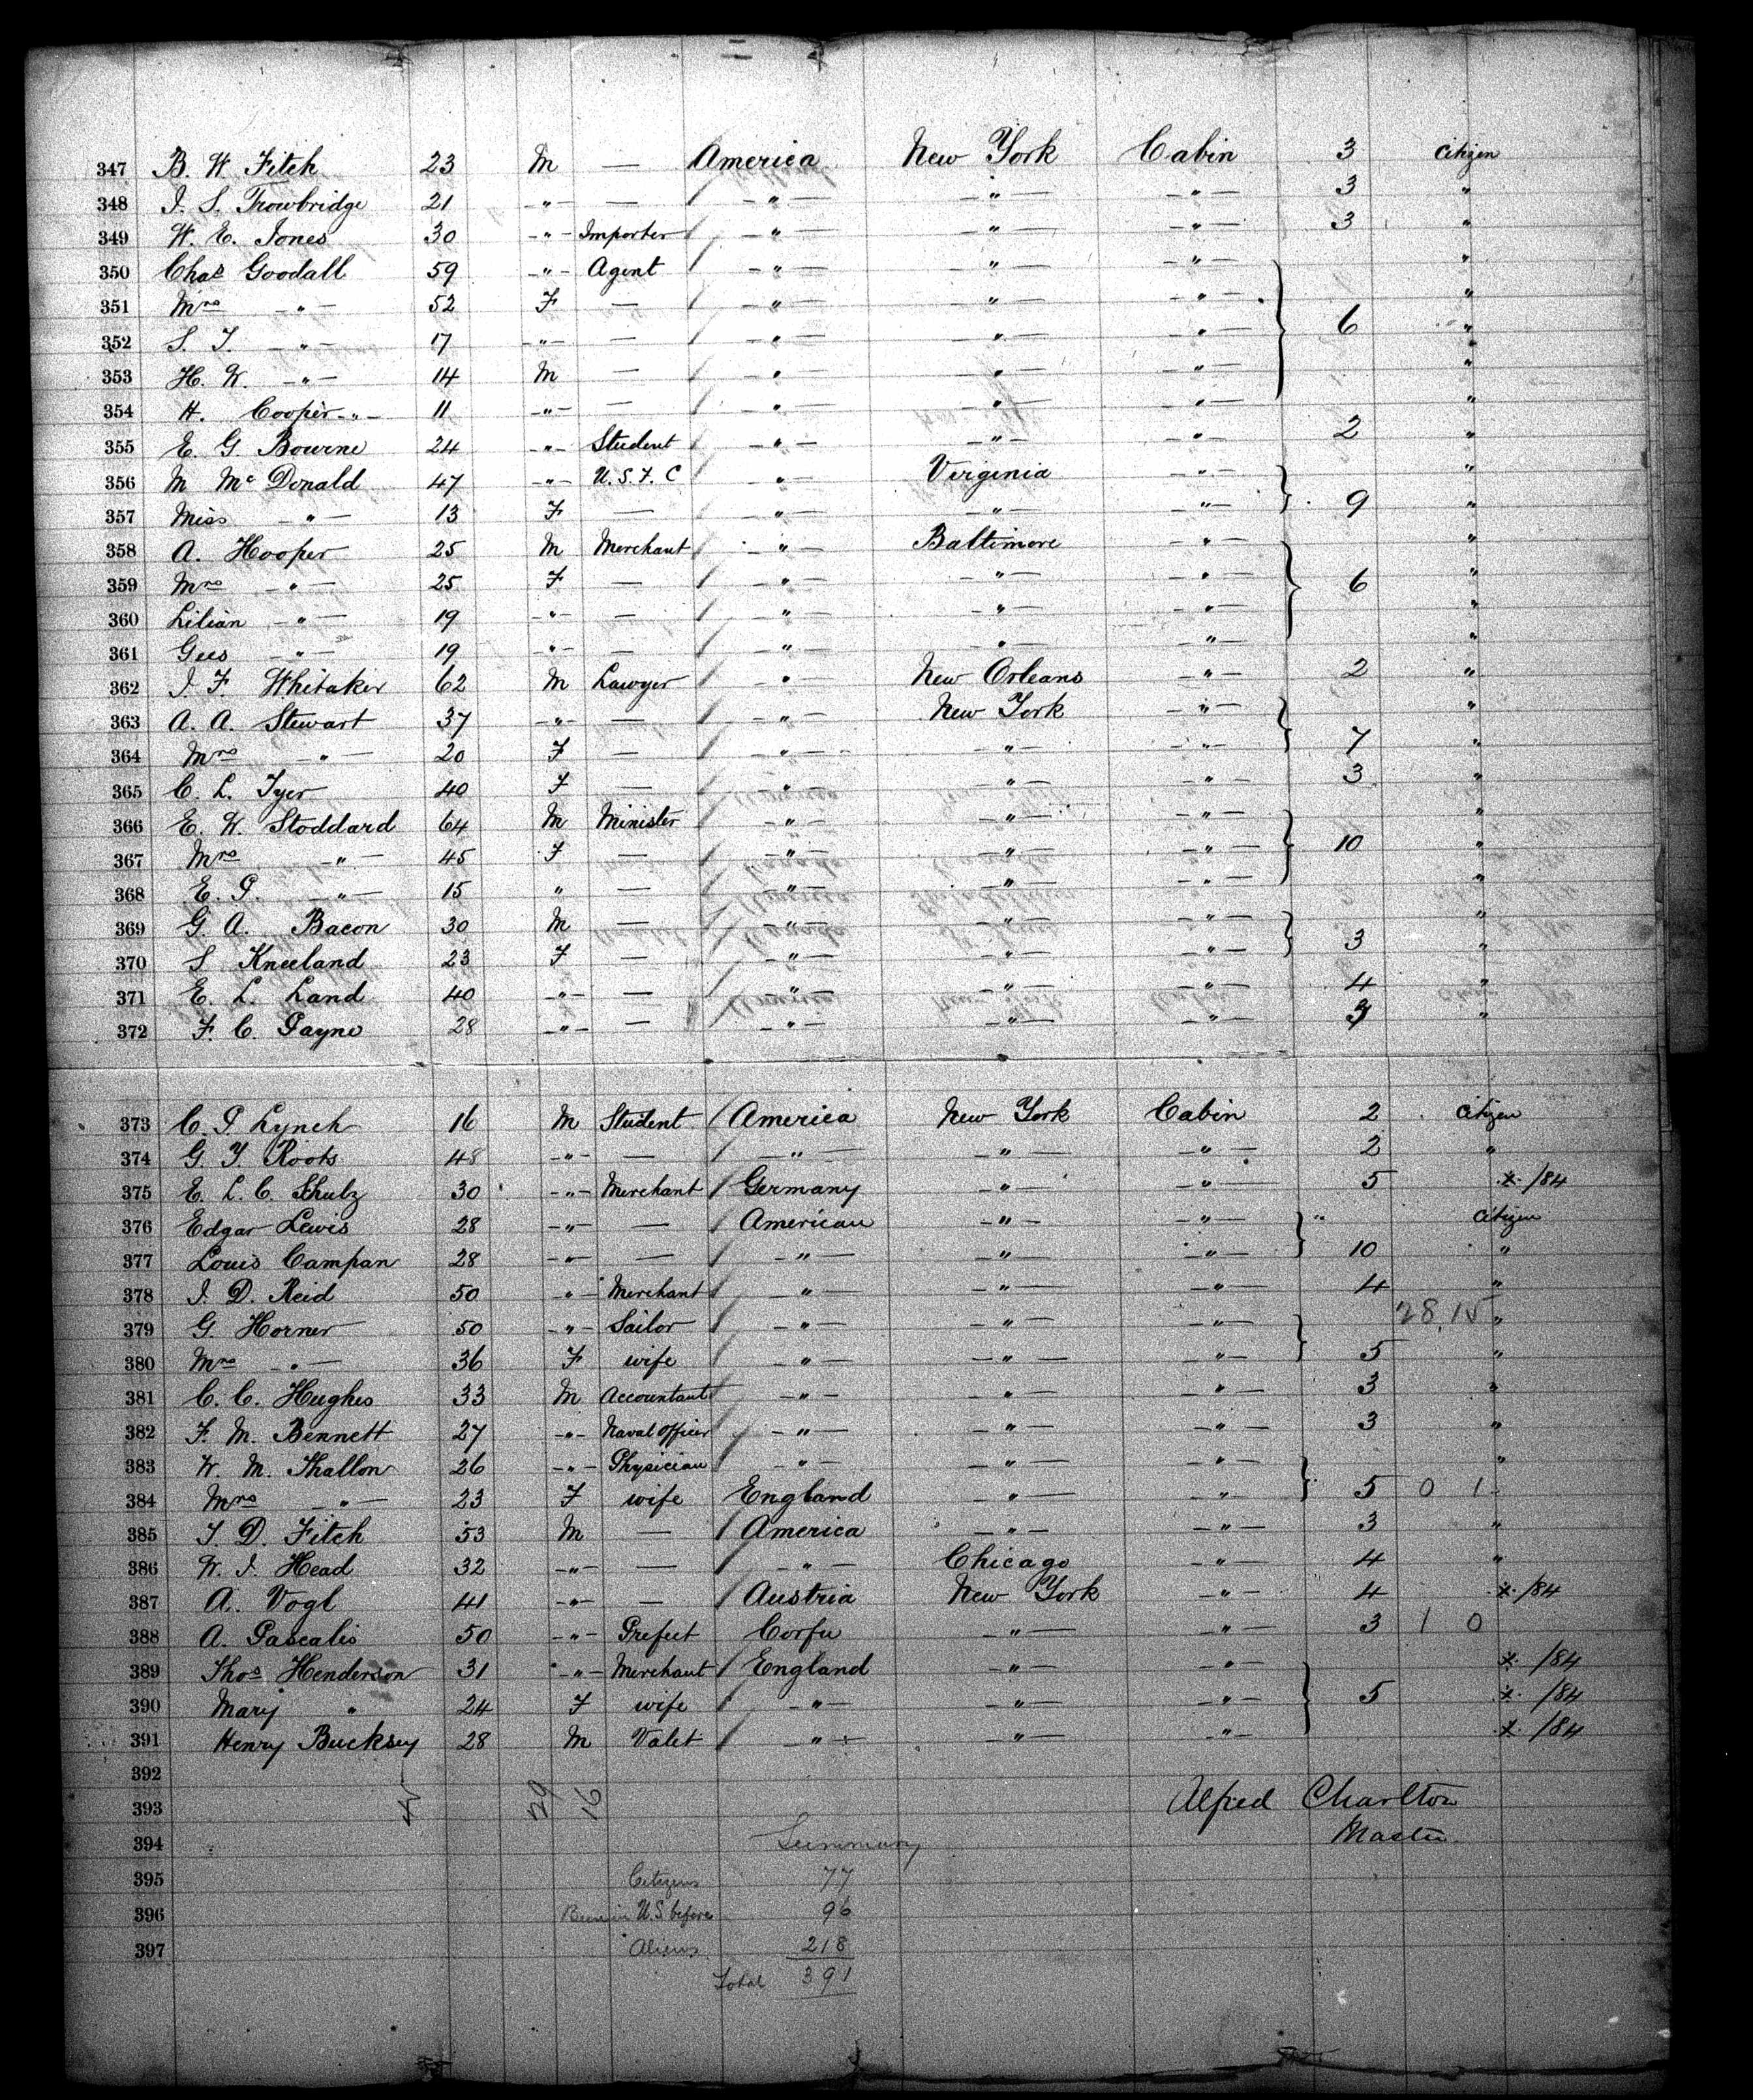 347 B. W Fitch 23 M — America New York Cabin 3 Citizen
348 J. S. Trowbridge 21 -"- — -"- -"- -"- 3 "
349 W. E. Jones 30 -"- Importer -"- -"- -"- 3 "
350 Chas Goodall 59 -"- Agent -"- -"- -"- "
351 Mrs -"- 52 F — -"- -"- -"- "
352 S. T. -"- 17 -"- — -"- -"- -"- 6 "
353 H. W. -"- 14 M — -"- -"- -"- "
354 H. Cooper -"- 11 -"- — -"- -"- -"- "
355 E. G. Bourne 24 -"- Student -"- -"- -"- 2 "
356 M McDonald 47 -"- U.S.F.C -"- Virginia -"- "
357 Miss -"- 13 F — -"- -"- -"- 9 "
358 A. Hooper 25 M Merchant -"- Baltimore -"- "
359 Mrs -"- 25 F — -"- -"- -"- 6 "
360 Lilian -"- 19 -"- — -"- -"- -"- "
361 -"- 19 -"- — -"- -"- -"- "
362 J. F. Whitaker 62 M Lawyer -"- New Orleans -"- 2 "
363 A. A. Stewart 37 -"- — -"- New York -"- "
364 Mrs -"- 20 F — -"- -"- -"- 7 "
365 C. L. Tyer 40 F — -"- -"- -"- 3 "
366 E. W. Stoddard 64 M Minister -"- -"- -"- "
367 Mrs -"- 45 F — -"- -"- -"- 10 "
368 E. P. -"- 15 " — -"- -"- -"- "
369 G. A. Bacon 30 M — -"- -"- -"- "
370 S Kneeland 23 F — -"- -"- -"- 3 "
371 E. L. Land 40 -"- — -"- -"- -"- 4 "
372 F. C. Payne 28 -"- — -"- -"- -"- 3 "
373 C. P Lynch 16 M Student America New York Cabin 2 Citizen
374 G. Y. Roots 48 -"- — -"- -"- -"- 2 "
375 E. L. C. Shulz 30 -"- Merchant Germany -"- -"- 5 *. /84
376 Edgar Lewis 28 -"- — American -"- -"- " Citizen
377 Louis Campan 28 -"- — -"- -"- -"- 10 "
378 J. D. Reid 50 -"- Merchant -"- -"- -"- 4 "
379 G. Horner 50 -"- Sailor -"- -"- -"- 28.15 "
380 Mrs -"- 36 F wife -"- -"- -"- 5 "
381 C. C. Hughes 33 M Accountant -"- -"- -"- 3 "
382 F. M. Bennett 27 -"- Naval Officer -"- -"- -"- 3 "
383 W. M. Thallon 26 -"- Physician -"- -"- -"- "
384 Mrs -"- 23 F wife England -"- " 5 0 1
385 T. D. Fitch 53 M — America -"- -"- 3 "
386 W. J. Head 32 -"- — -"- Chicago -"- 4 "
387 A. Vogl 41 -"- — Austria New York -"- 4 *. /84
388 A. Pascalis 50 -"- Prefect Corfu -"- -"- 3 1 0
389 Thos Henderson 31 -"- Merchant England -"- -"- *. /84
390 Mary " 24 F wife -"- -"- -"- 5 *. /84
391 Henry Bucksey 28 M Valet -"- -"- -"- *. /84
392
393 29 16 Alfred Charlton
394 Summary Master
395 Citizens 77
396 Been in U.S before 96
397 Aliens 218
Total 391